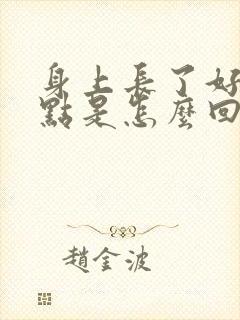 身上長了好
點是怎麼回
趙金波